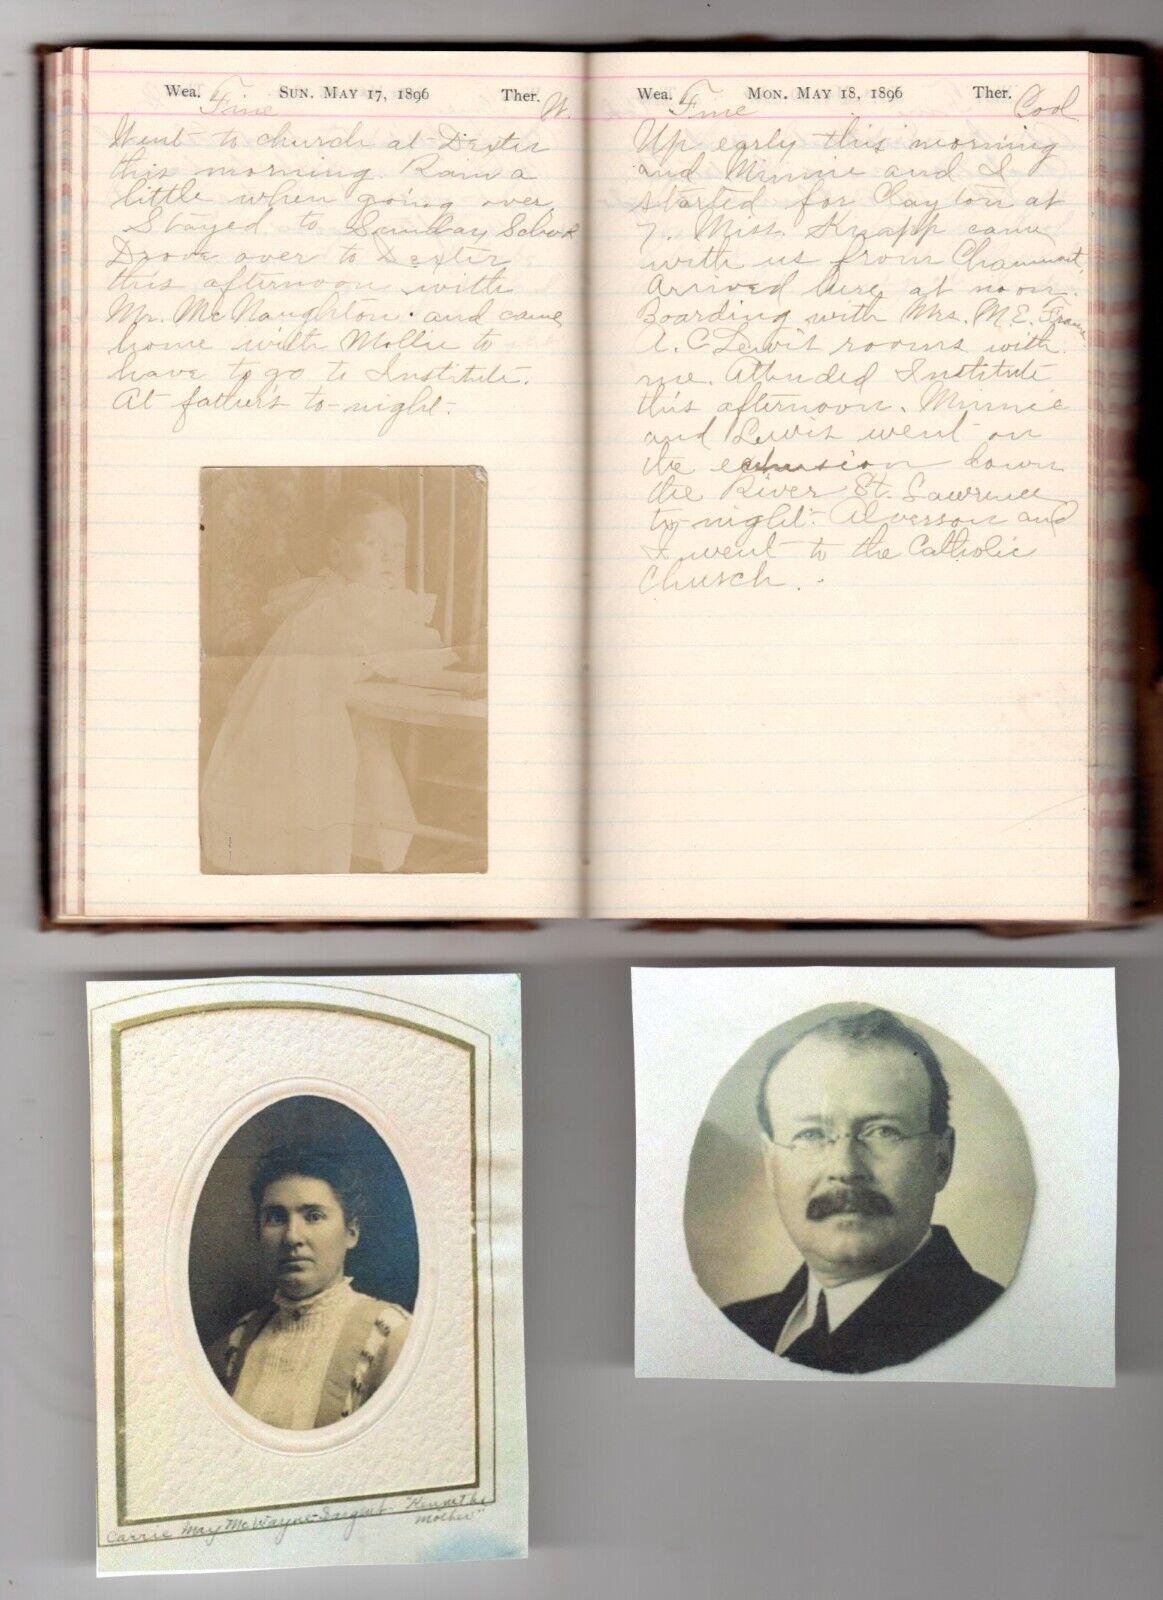 Wea. Fine Sun. May 17, 1896 Ther. W.
Went to church at Dexter
this morning. Rain a
little when going over
Stayed to Sunday School
Drove over to Dexter
this afternoon with
Mr. McNaughton and came
home with Mollie to
have to go to Institute.
At father's to-night.
Wea. Fine Mon. May 18, 1896 Ther. Cool
Up early this morning
and Minnie and I
started for Clayton at
7. Miss Knapp came
with us from Chaumont,
Arrived here at noon.
Boarding with Mrs. M.E.
A. C Lewis rooms with
me. Attended Institute
this afternoon. Minnie
and Lewis went on
the down
the River St. Lawrence
to-night. Alverson and
I went to the Catholic
Church.
Carrie May McWayne-Sargent- "Kenneths
mother"